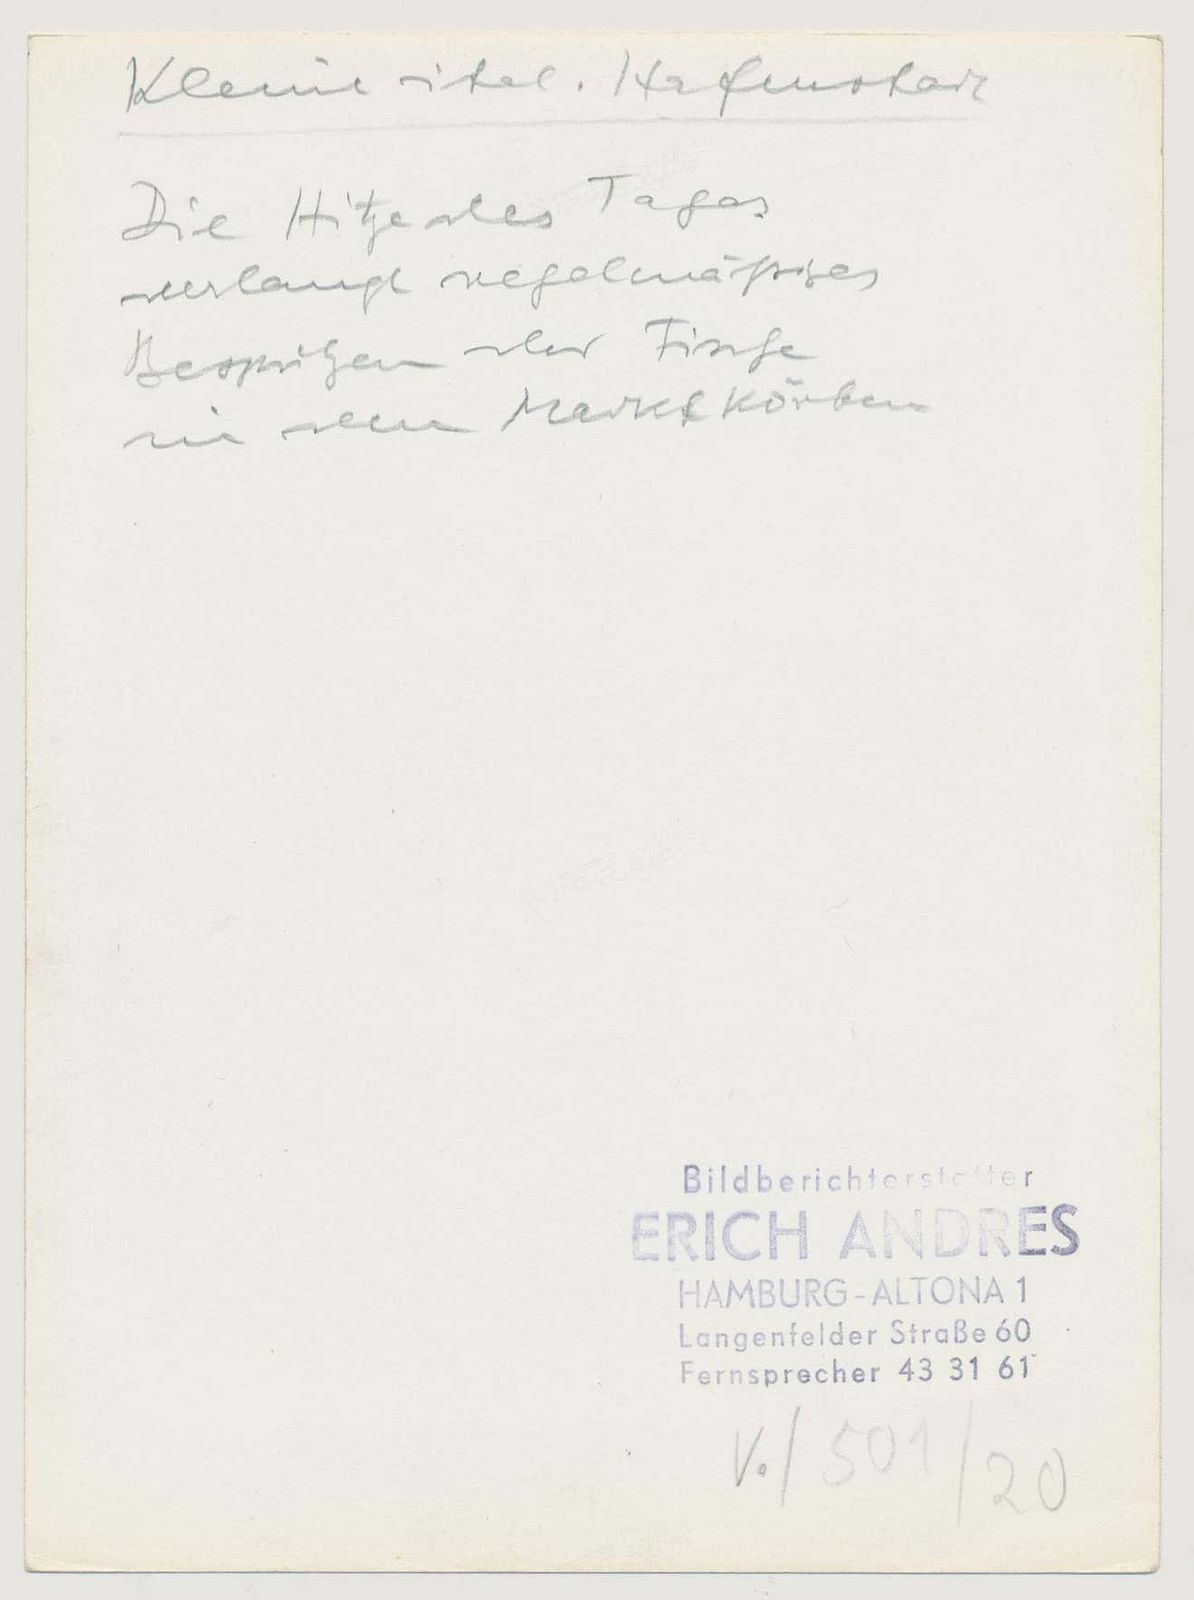 Kleine ital. Hafenstadt
Die Hitze des Tages
verlangt regelmäßiges
Bespritzen der Fische
in den Marktkörben
Bildberichterstatter
ERICH ANDRES
HAMBURG-ALTONA 1
Langenfelder Straße 60
Fernsprecher 43 31 61
V./501/20